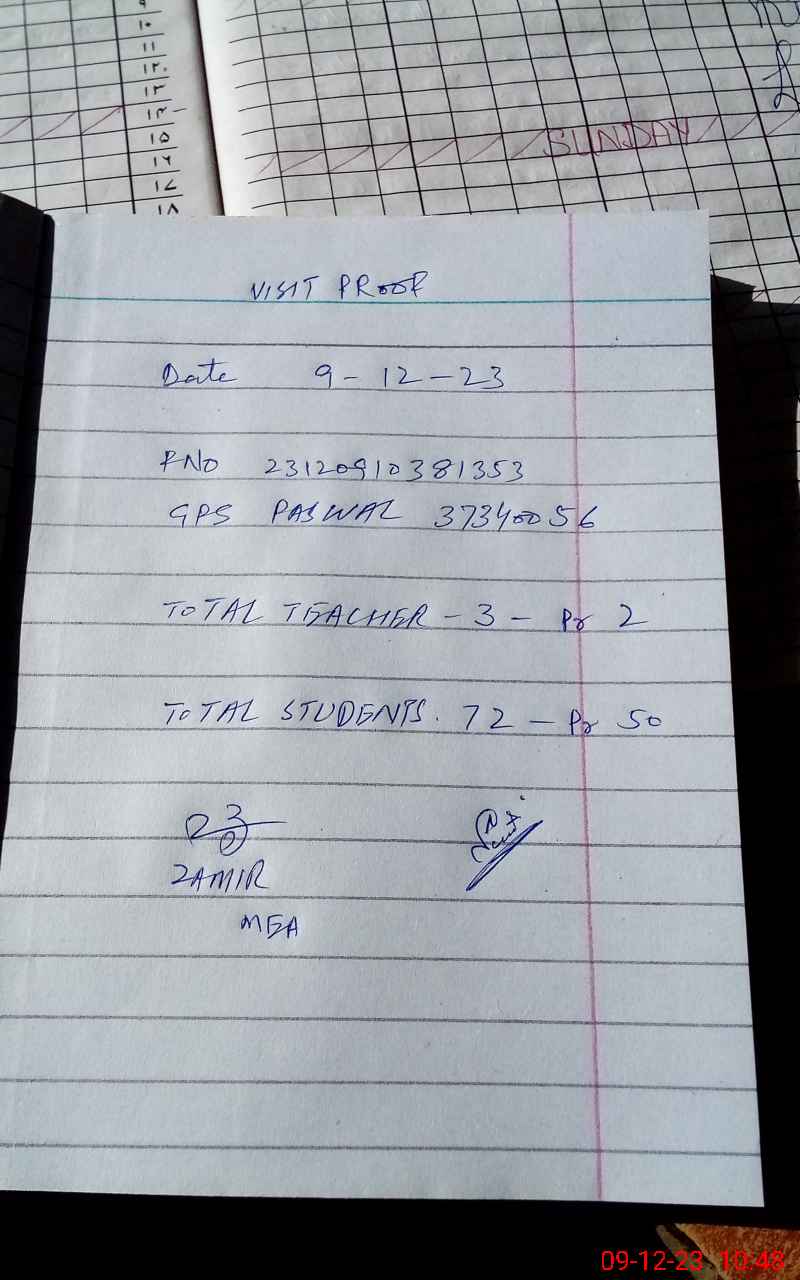 ۹
۱۰
۱۱
۱۲
۱۳
۱۴
۱۵
۱۶
۱۷
۱۸
SUNDAY
VISIT PROOF
Date 9-12-23
RNO 23120910381353
GPS PASWAL 37340056
TOTAL TEACHER - 3 - Pr 2
TOTAL STUDENTS. 72 - Pr 50
ZAMIR
MEA
09-12-23 10:48